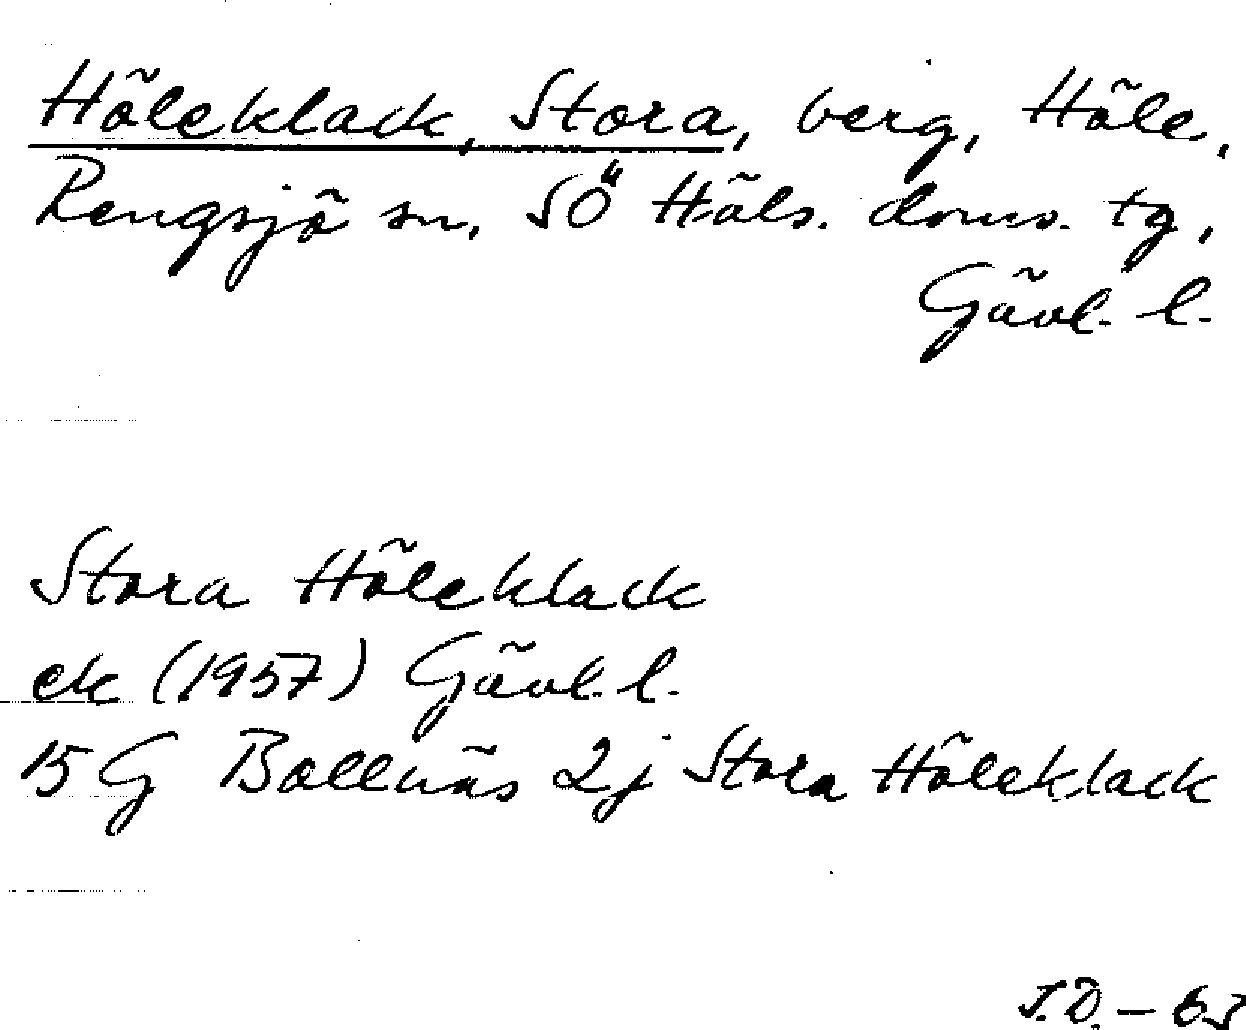 Höleklack, Stora, berg, Höle,
Rengsjö sn, SÖ Häls. doms. tg,
Gävl. l.
Stora Höleklack
ek (1957) Gävl. l.
15 G Bollnäs 2j Stora Höleklack
J.Ö. – 63